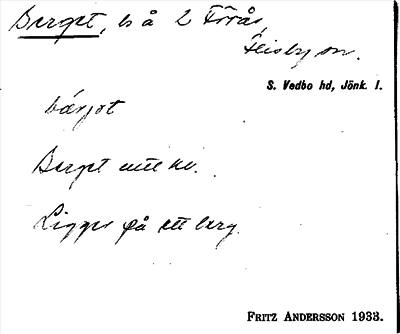 Berget, ls å 2 Förås,
Flisby sn.
S. Vedbo hd, Jönk. l.
bárjət
Berget
Ligger på ett berg.
FRITZ ANDERSSON 1933.